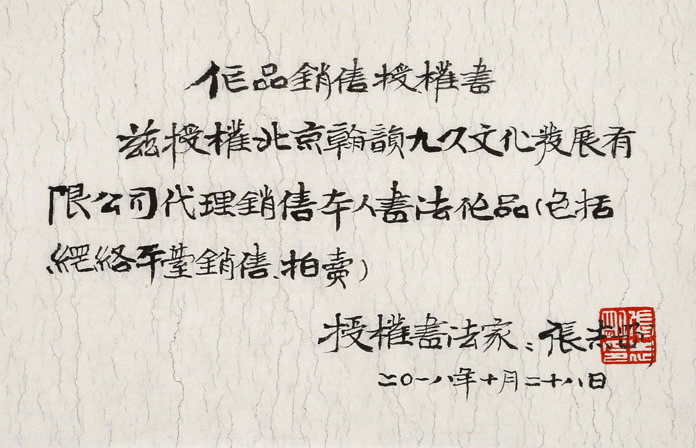 作品銷售授權書
茲授權北京翰韻九久文化發展有
限公司代理銷售本人書法作品(包括
網絡平臺銷售、拍賣)
授權書法家:張志
二〇一八年十月二十八日